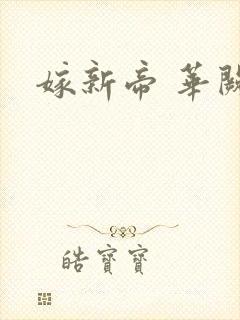 嫁新帝 華闕
皓寶寶